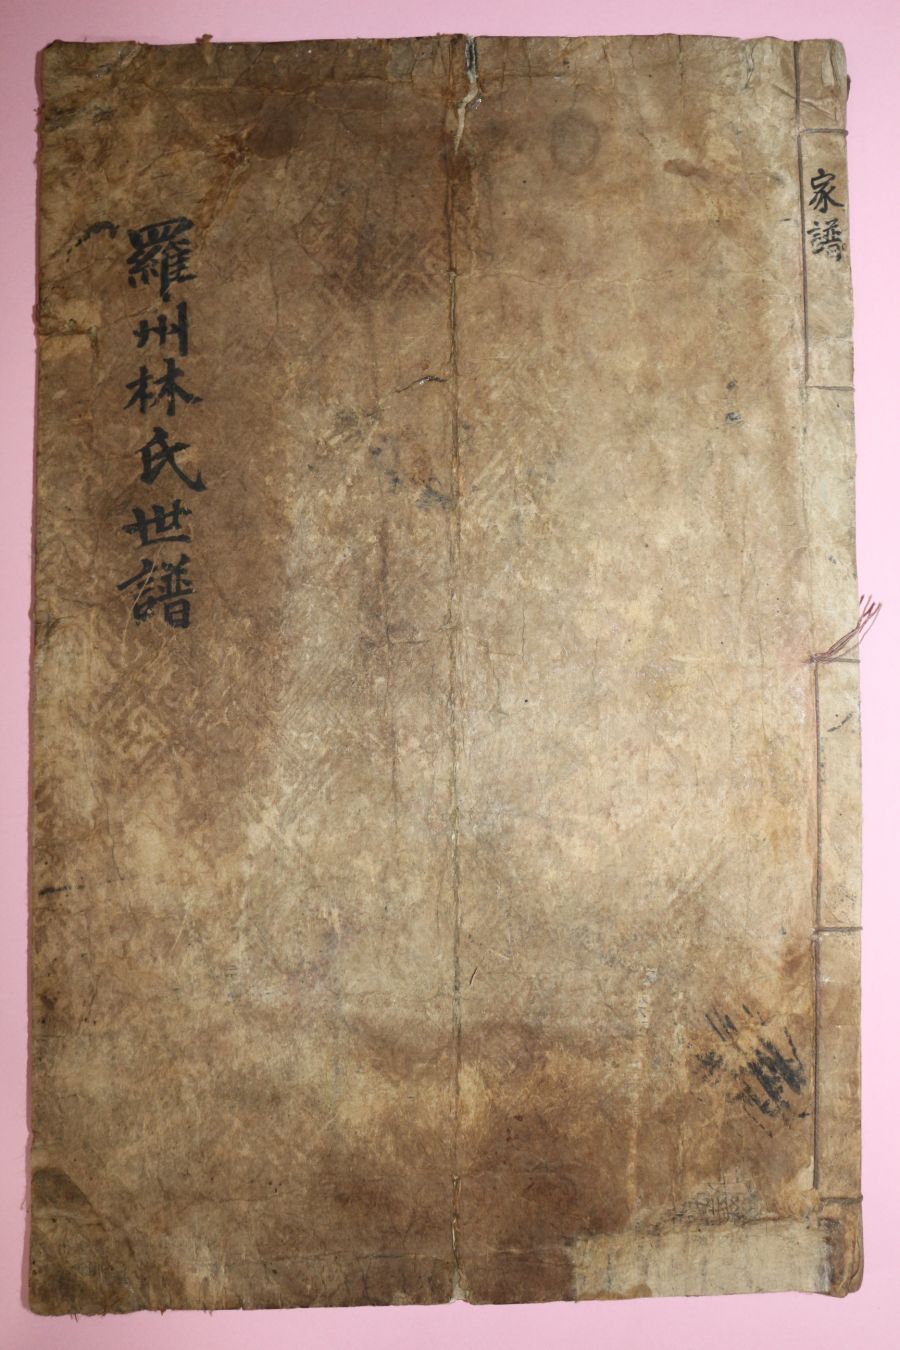 家譜
羅州林氏世譜